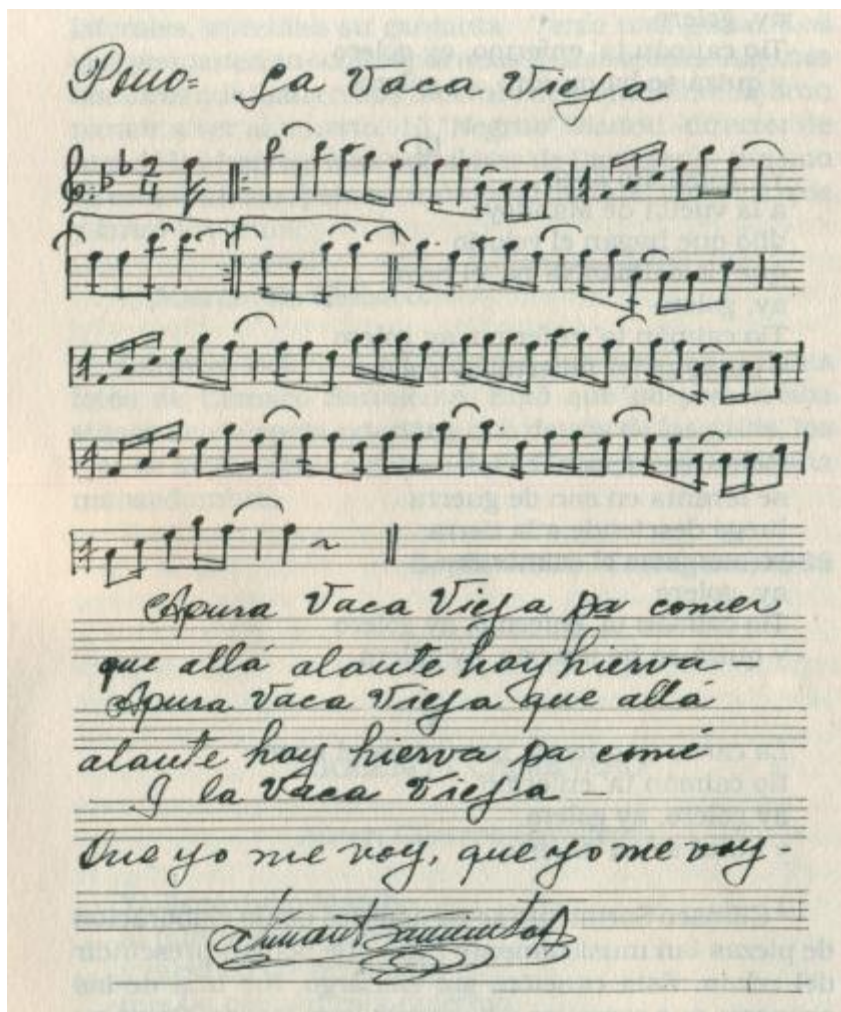 La Vaca Vieja
2
4
Apura Vaca Vieja pa comer
que allá alante hay hierva —
Apura Vaca Vieja que allá
alante hay hierva pa comé
I la Vaca Vieja —
Que yo me voy, que yo me voy.